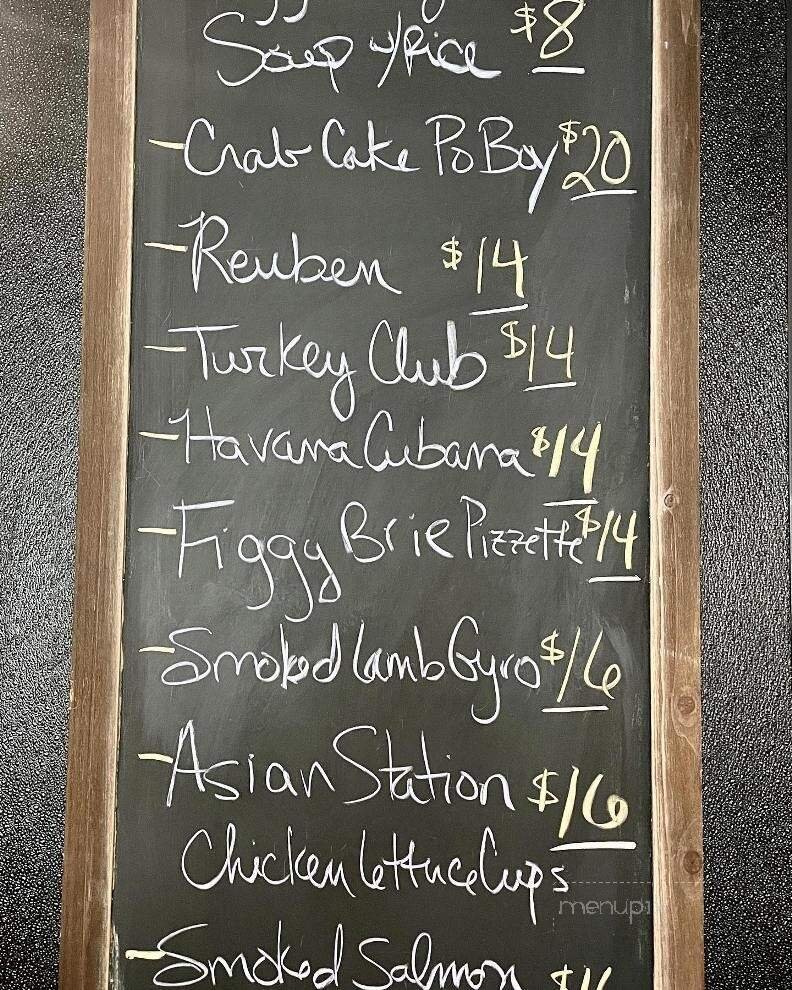 Soup w/Rice $8
-Crab Cake Po Boy $20
-Reuben $14
-Turkey Club $14
-Havana Cubana $14
-Figgy Brie Pizzette $14
-Smoked Lamb Gyro $16
-Asian Station $16
Chicken Lettuce Cups
menupi
-Smoked Salmon